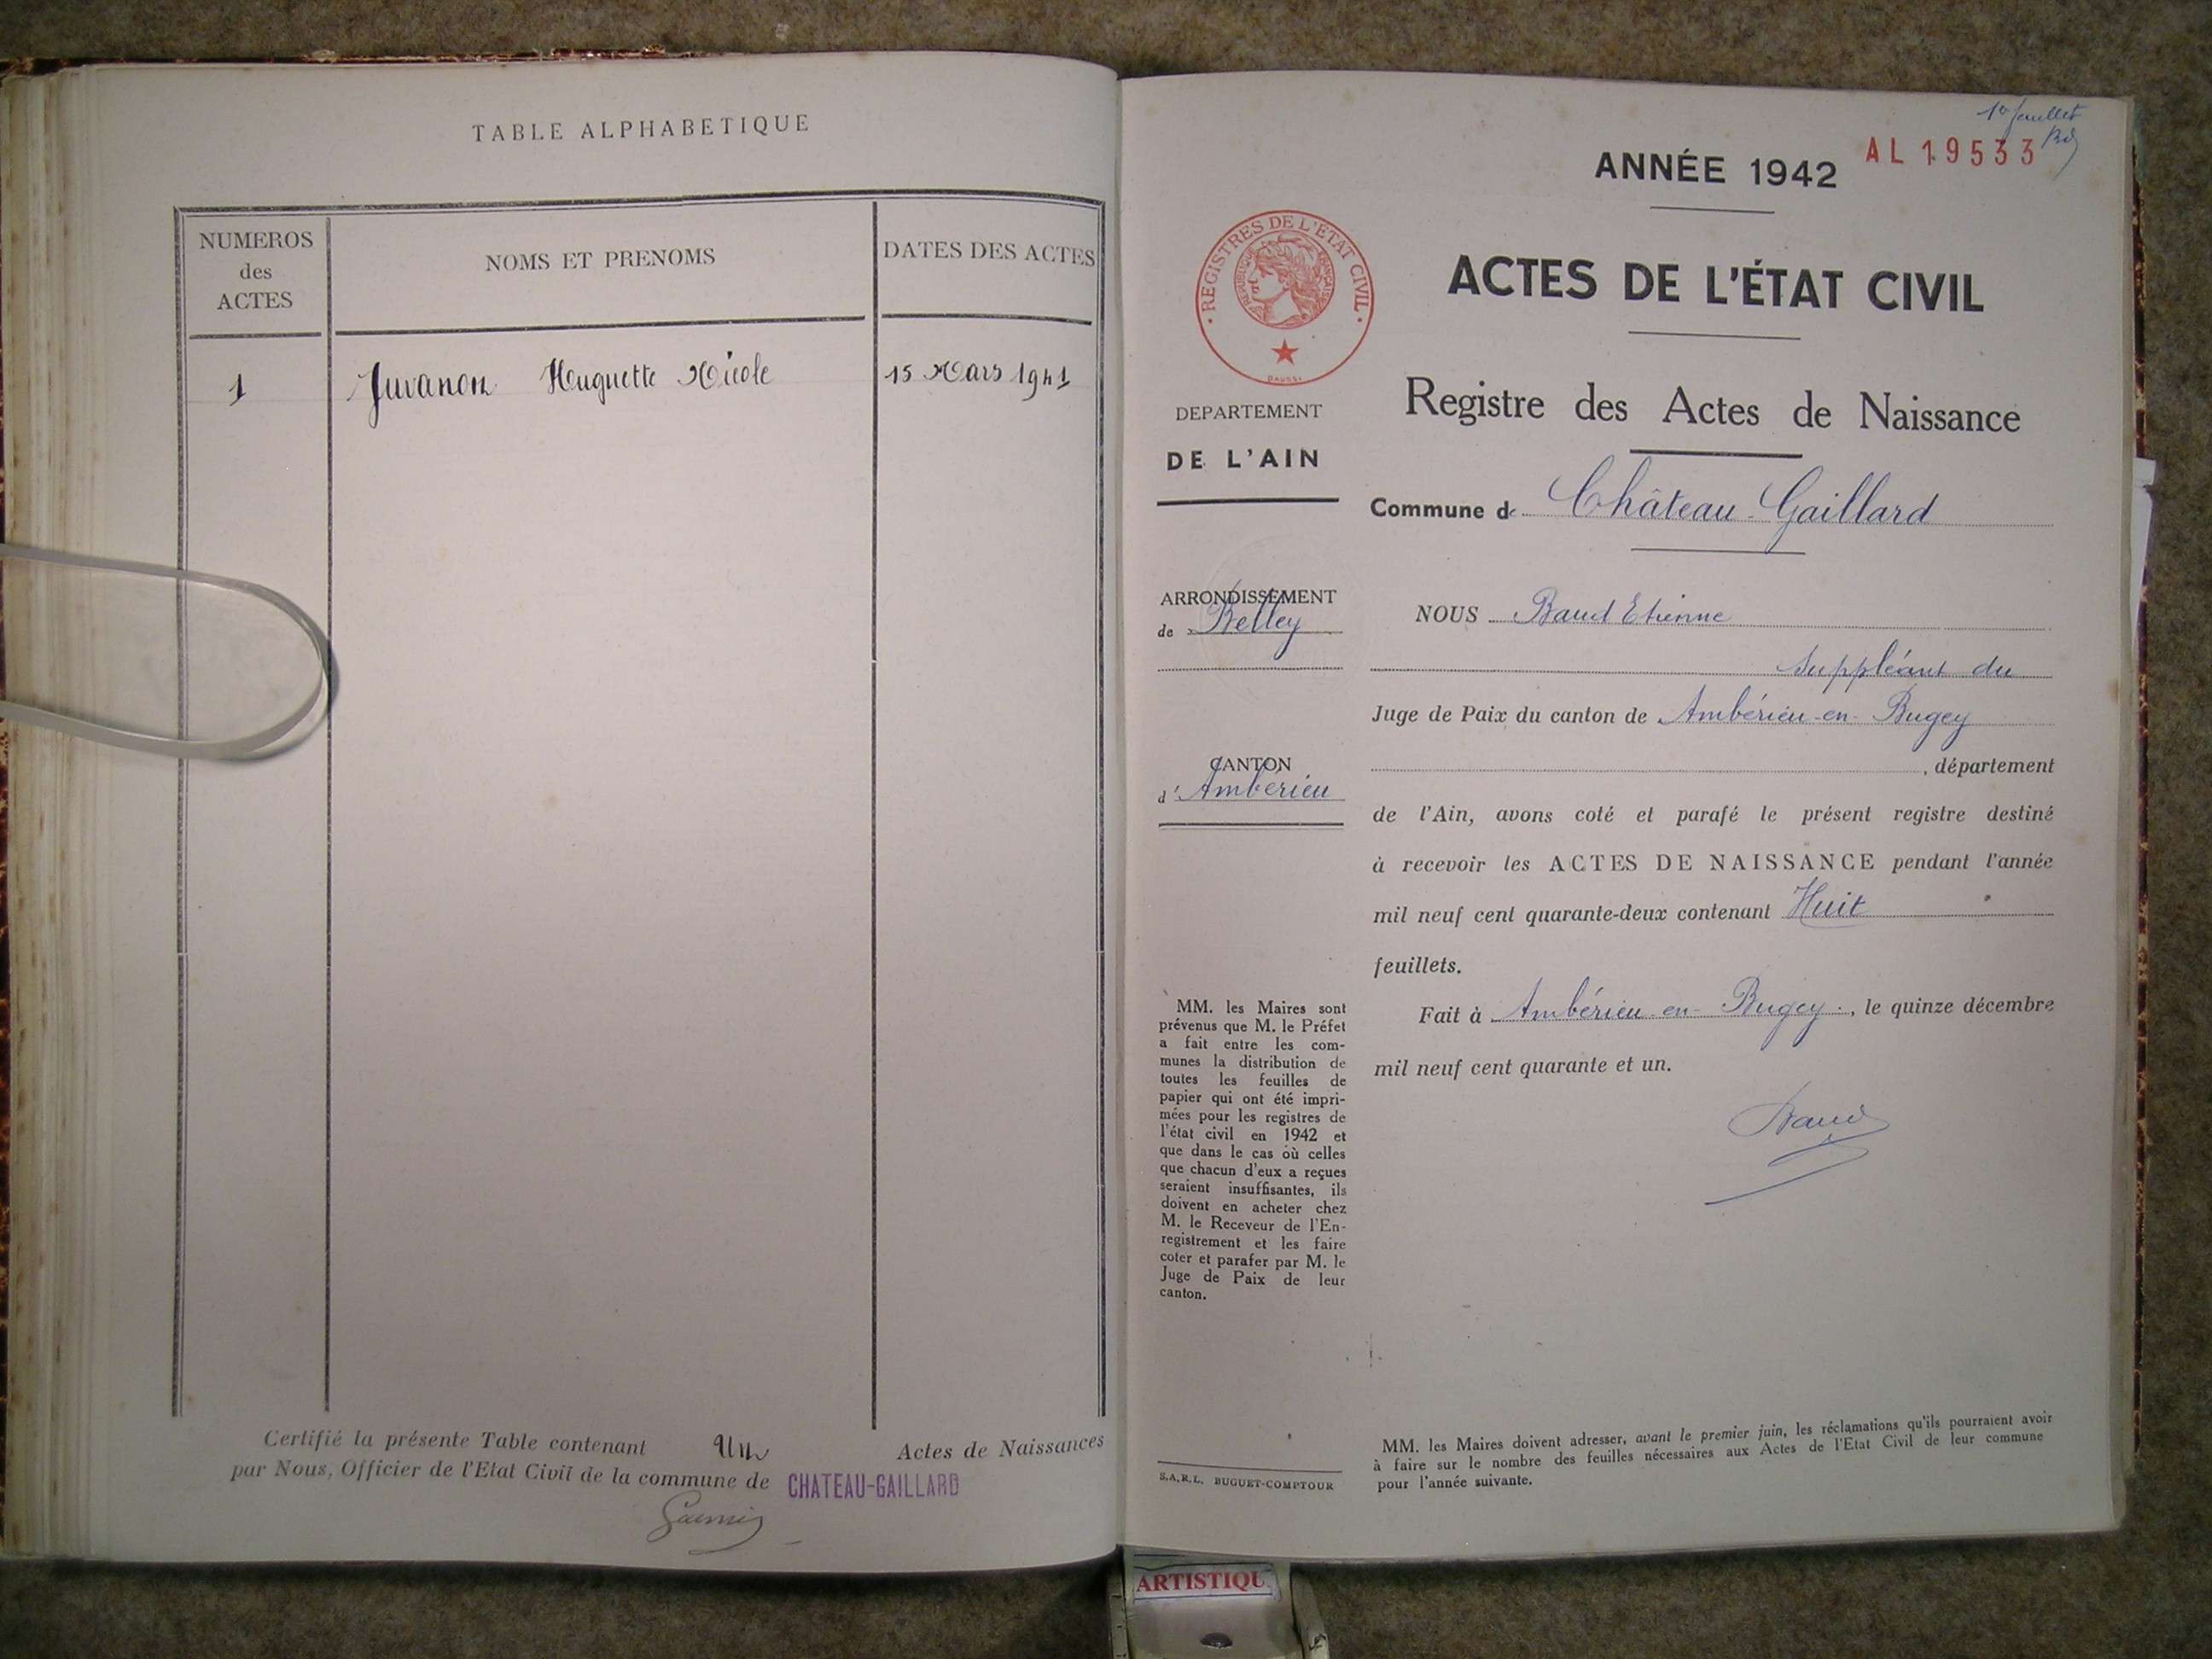 TABLE ALPHABETIQUE
NUMEROS
des
ACTES
NOMS ET PRENOMS
DATES DES ACTES
1
Juvanon Huguette Nicole
15 Mars 1941
Certifié la présente Table contenant Un Actes de Naissances
par Nous, Officier de l'Etat Civil de la commune de CHATEAU-GAILLARD
1er feuillet
AL 19533
ANNÉE 1942
ACTES DE L'ÉTAT CIVIL
Registre des Actes de Naissance
Commune de Château-Gaillard
· REGISTRES DE L'ETAT CIVIL ·
REPUBLIQUE FRANÇAISE
DEPARTEMENT
DE L'AIN
ARRONDISSEMENT
de Belley
CANTON
d'Ambérieu
MM. les Maires sont
prévenus que M. le Préfet
a fait entre les com-
munes la distribution de
toutes les feuilles de
papier qui ont été impri-
mées pour les registres de
l'état civil en 1942 et
que dans le cas où celles
que chacun d'eux a reçues
seraient insuffisantes, ils
doivent en acheter chez
M. le Receveur de l'En-
registrement et les faire
coter et parafer par M. le
Juge de Paix de leur
canton.
S.A.R.L. BUGUET-COMPTOUR
NOUS Baud Etienne
Suppléant du
Juge de Paix du canton de Ambérieu-en-Bugey
, département
de l'Ain, avons coté et parafé le présent registre destiné
à recevoir les ACTES DE NAISSANCE pendant l'année
mil neuf cent quarante-deux contenant Huit
feuillets.
Fait à Ambérieu-en-Bugey, le quinze décembre
mil neuf cent quarante et un.
Baud
MM. les Maires doivent adresser, avant le premier juin, les réclamations qu'ils pourraient avoir
à faire sur le nombre des feuilles nécessaires aux Actes de l'Etat Civil de leur commune
pour l'année suivante.
ARTISTIQU